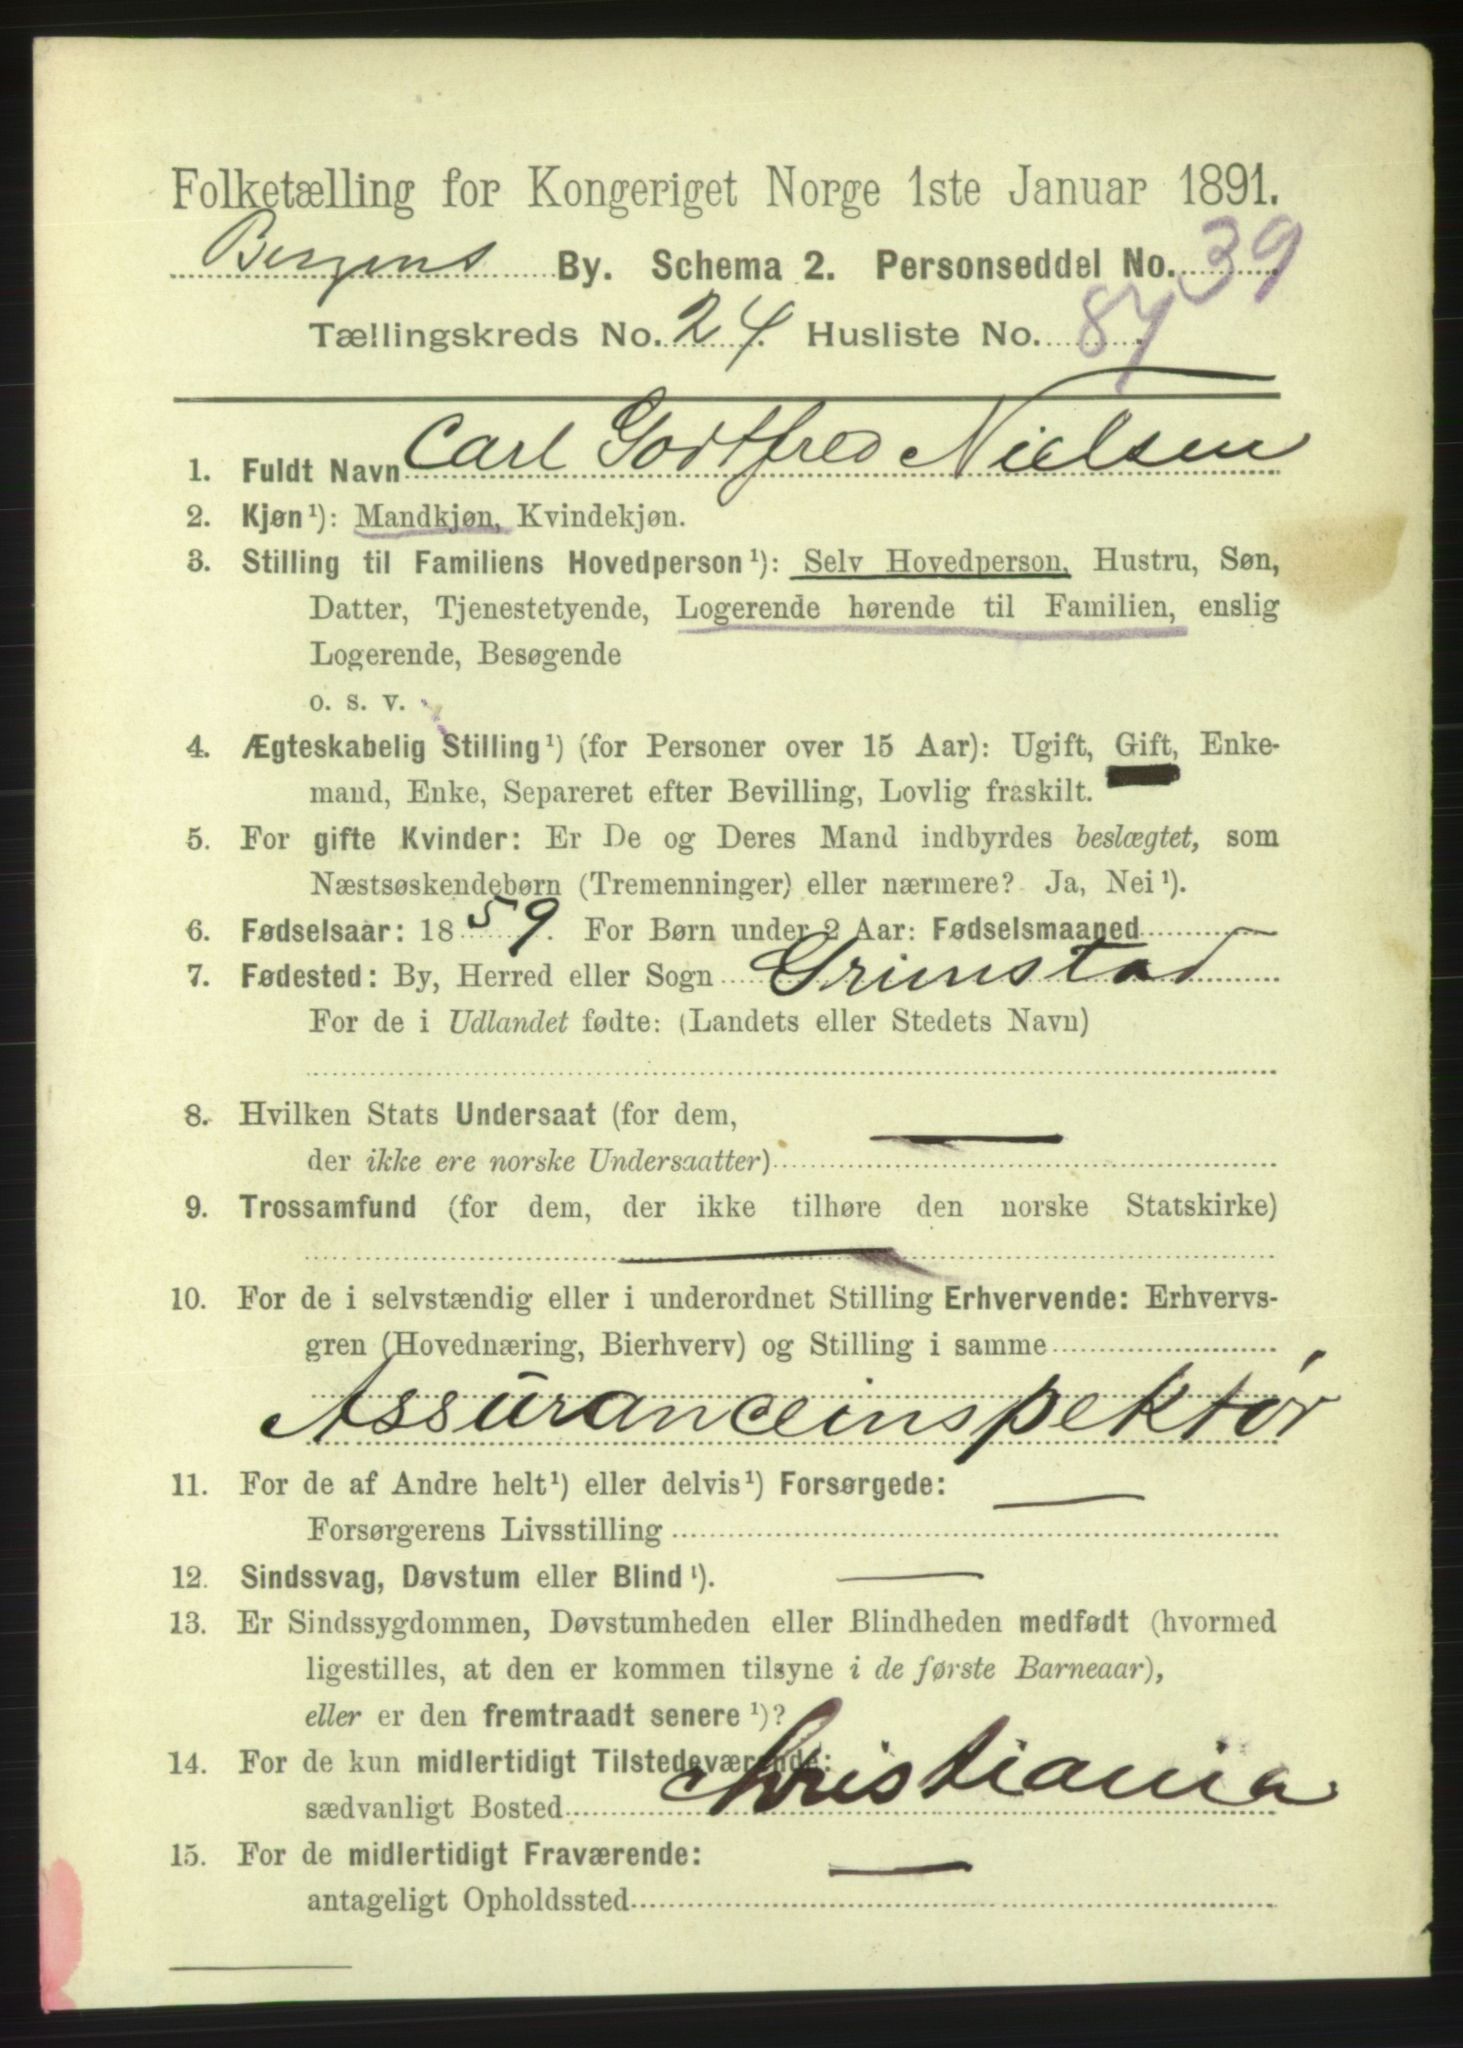 Folketælling for Kongeriget Norge 1ste Januar 1891.
Bergens By. Schema 2. Personseddel No. 39
Tællingskreds No. 24. Husliste No. 84.
1. Fuldt Navn Carl Godtfred Nielsen
2. Kjøn¹): Mandkjøn, Kvindekjøn.
3. Stilling til Familiens Hovedperson¹): Selv Hovedperson, Hustru, Søn,
Datter, Tjenestetyende, Logerende hørende til Familien, enslig
Logerende, Besøgende
o. s. v.
4. Ægteskabelig Stilling¹) (for Personer over 15 Aar): Ugift, Gift, Enke-
mand, Enke, Separeret efter Bevilling, Lovlig fraskilt.
5. For gifte Kvinder: Er De og Deres Mand indbyrdes beslægtet, som
Næstsøskendebørn (Tremenninger) eller nærmere? Ja, Nei¹).
6. Fødselsaar: 1859. For Børn under 2 Aar: Fødselsmaaned
7. Fødested: By, Herred eller Sogn Grimstad
For de i Udlandet fødte: (Landets eller Stedets Navn)
8. Hvilken Stats Undersaat (for dem,
der ikke ere norske Undersaatter)
9. Trossamfund (for dem, der ikke tilhøre den norske Statskirke)
10. For de i selvstændig eller i underordnet Stilling Erhvervende: Erhvervs-
gren (Hovednæring, Bierhverv) og Stilling i samme
Assuranceinspektør
11. For de af Andre helt¹) eller delvis¹) Forsørgede:
Forsørgerens Livsstilling
12. Sindssvag, Døvstum eller Blind¹).
13. Er Sindssygdommen, Døvstumheden eller Blindheden medfødt (hvormed
ligestilles, at den er kommen tilsyne i de første Barneaar),
eller er den fremtraadt senere¹)?
14. For de kun midlertidigt Tilstedeværende:
sædvanligt Bosted Christiania
15. For de midlertidigt Fraværende:
antageligt Opholdssted